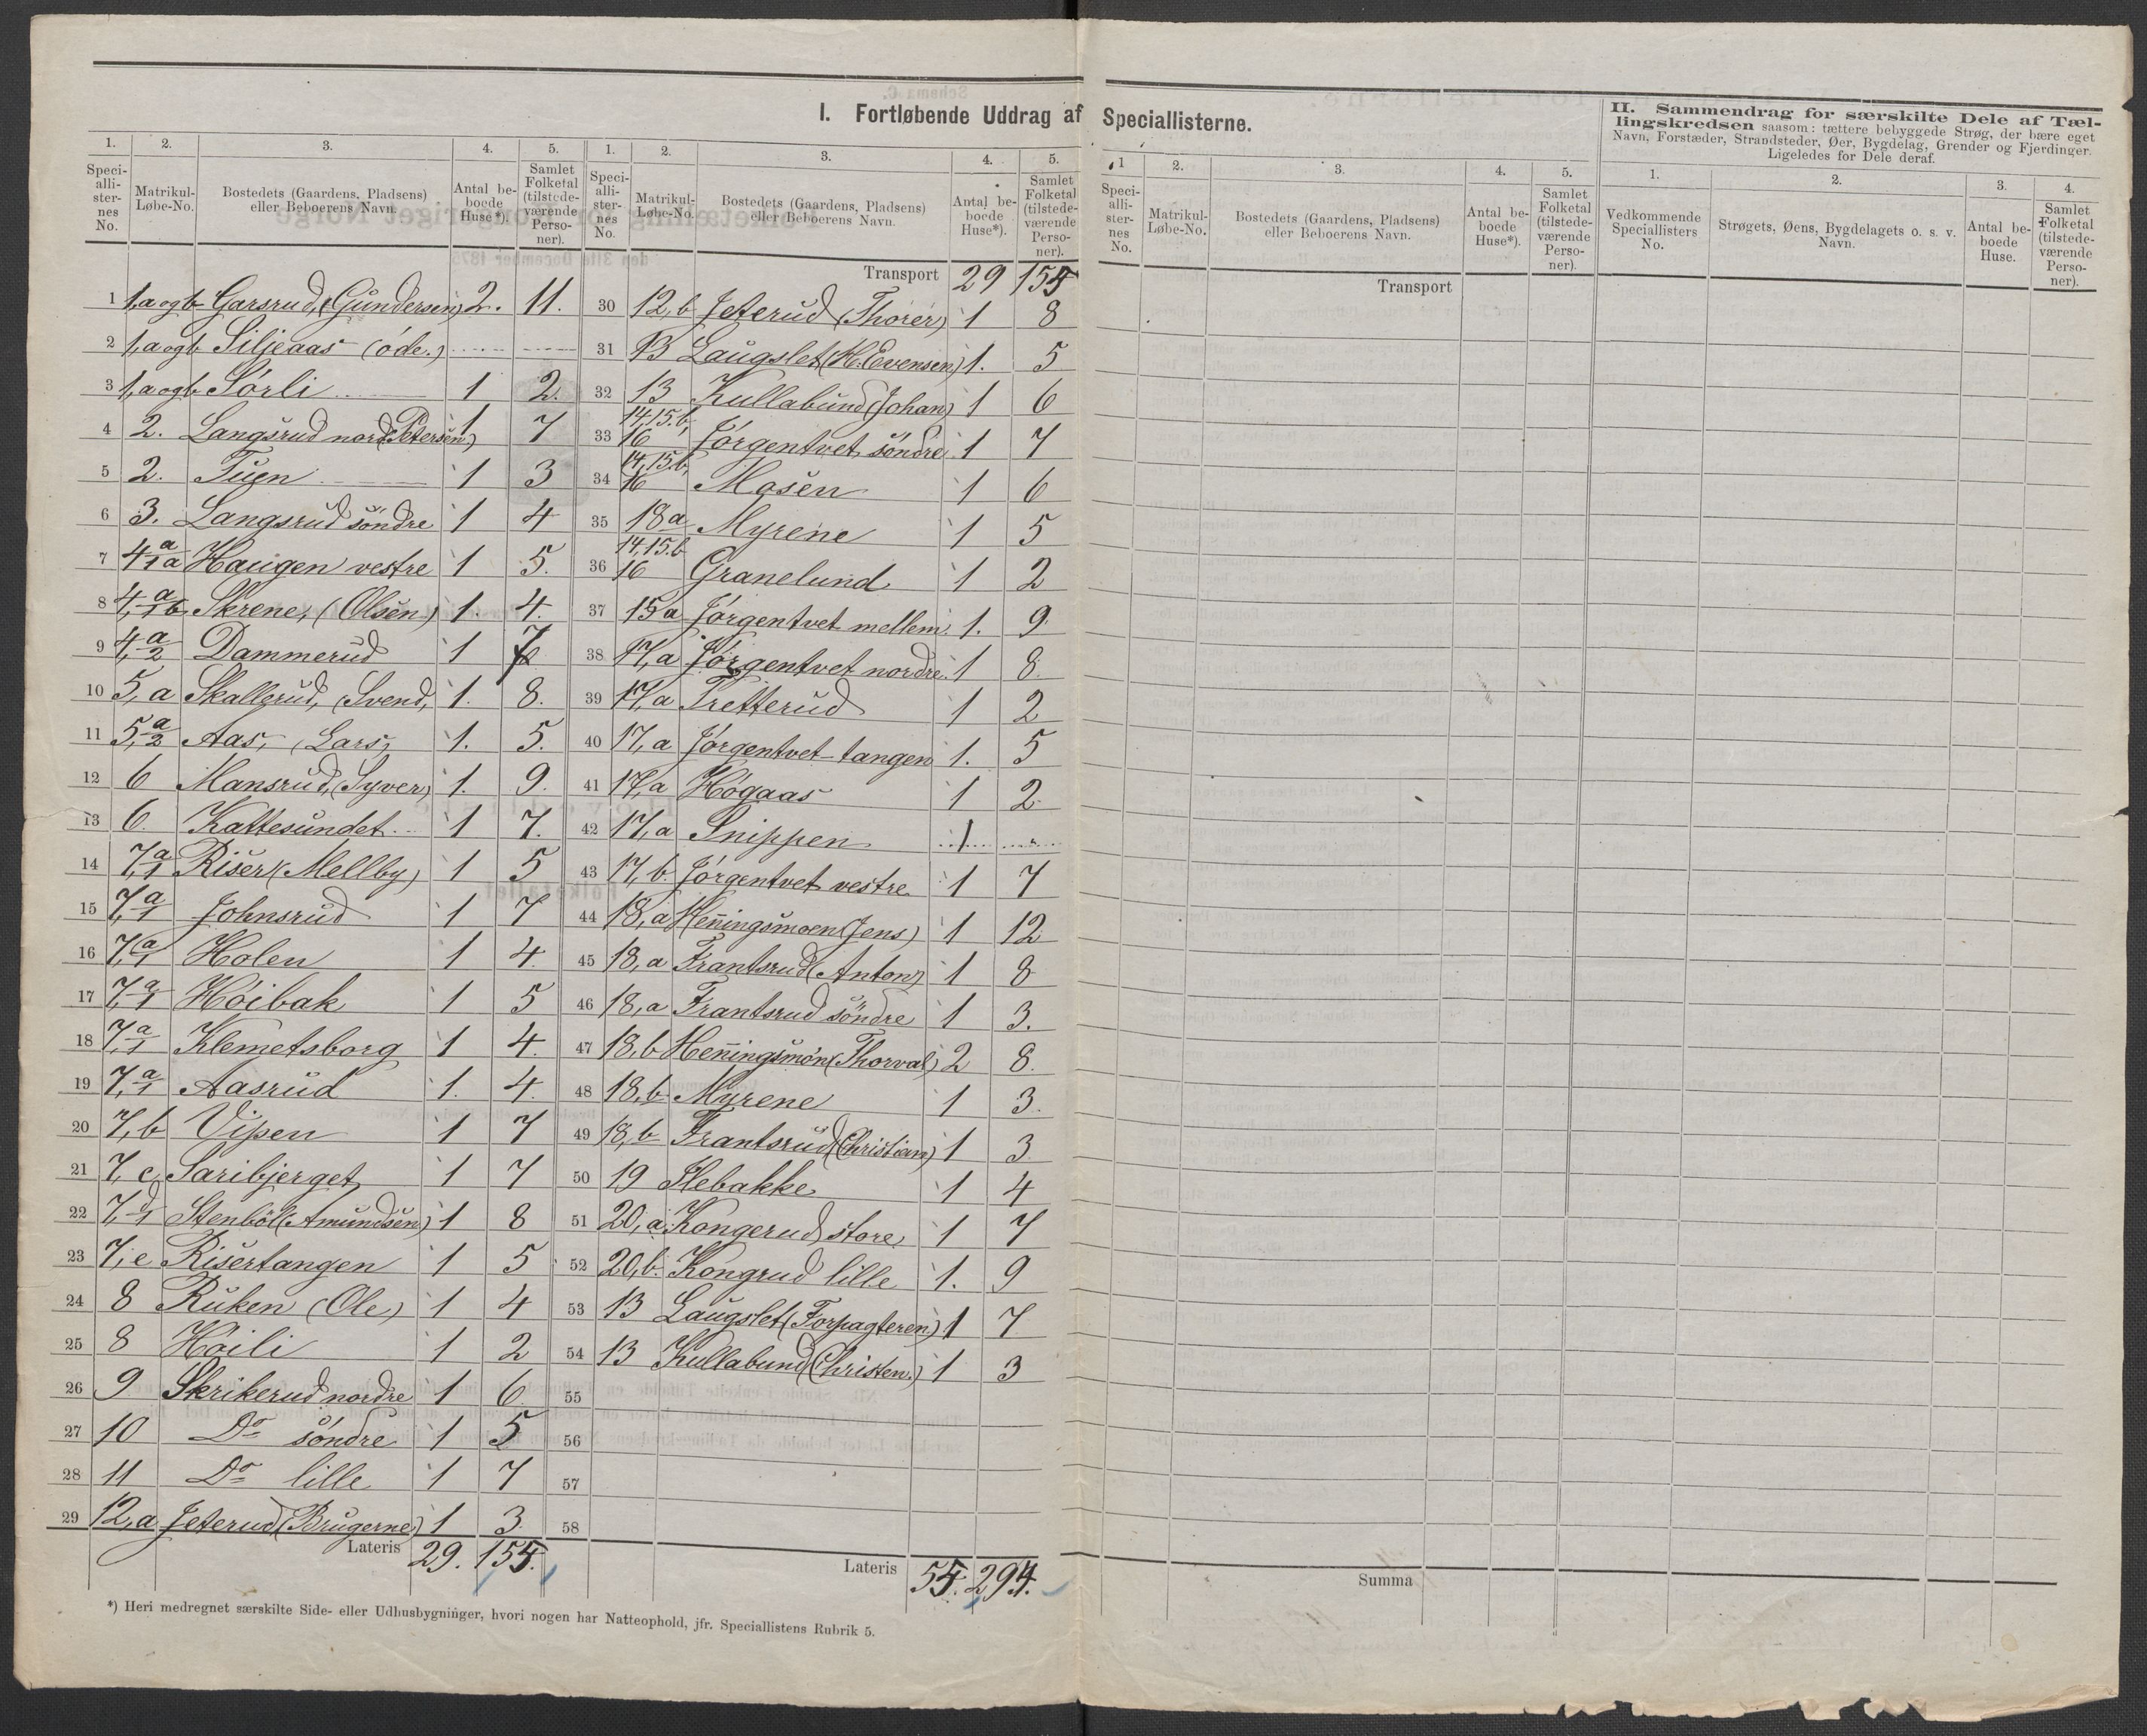 I. Fortløbende Uddrag af Speciallisterne.
1. 2. 3. 4. 5.
Speciallisternes No. Matrikul-Løbe-No. Bostedets (Gaardens, Pladsens) eller Beboerens Navn. Antal beboede Huse*). Samlet Folketal (tilstedeværende Personer).
1 1,a og b Garsrud, (Gundersen) 2. 11.
2 1,a og b Siljeaas (öde.)
3 1,a og b Sörli 1 2.
4 2. Langsrud nord (Petersen) 1 7
5 2. Tuen 1 3
6 3. Langsrud söndre 1 4
7 4 a/1a Haugen vestre 1 5.
8 4, a/1b Skrene, (Olsen) 1. 4.
9 4, a/2 Dammerud 1 7
10 5, a Skallerud, (Svend, 1. 8.
11 5, a/2 Aas, (Lars, 1. 5.
12 6 Mansrud, (Syver) 1. 9.
13 6. Kattesundet 1 7.
14 7, a/1 Riser (Mellby) 1 5
15 7, a/1 Johnsrud 1 7
16 7, a/1 Holen 1 4.
17 7, a/1 Höibak 1 5
18 7, a/1 Klemetsborg 1 4.
19 7, a/1 Aasrud 1. 4.
20 7, b Vipen 1 7
21 7, c Saribjerget 1 7
22 7, d/1 Stenböl (Amundsen) 1 8
23 7, e Risertangen 1 5
24 8 Ruken (Ole) 1 4
25 8 Höili 1 2
26 9 Skrikerud nordre 1 6
27 10 Do söndre 1 5
28 11 Do lille 1 7
29 12,a Jeterud (Brugerne) 1 3.
Lateris 29. 155.
*) Heri medregnet særskilte Side- eller Udhusbygninger, hvori nogen har Natteophold, jfr. Speciallistens Rubrik 5.
1. 2. 3. 4. 5.
Speciallisternes No. Matrikul-Løbe-No. Bostedets (Gaardens, Pladsens) eller Beboerens Navn. Antal beboede Huse*). Samlet Folketal (tilstedeværende Personer).
Transport 29 155
30 12, b Jeterud (Thorer) 1 8
31 13 Laugslet (H. Evensen) 1. 5
32 13 Kullabund (Johan) 1 6
33 14, 15.b, 16 Jörgentvet söndre 1 7
34 14, 15.b, 16 Mosen 1 6
35 18 a Myrene 1 5
36 14, 15.b 16 Granelund 1 2
37 15 a Jörgentvet mellem 1. 9.
38 17, a Jörgentvet nordre 1 8.
39 17, a Tretterud 1 2
40 17, a Jörgentvet-tangen 1. 5
41 17, a Högaas 1 2.
42 17, a Snippen 1
43 17, b Jörgentvet vestre 1 7
44 18, a Henningsmoen (Jens) 1 12
45 18, a Frantsrud (Anton) 1 8
46 18, a Frantsrud söndre 1 3.
47 18, b Henningsmön (Thorval) 2 8.
48 18, b Myrene 1 3.
49 18, b Frantsrud (Christian) 1 3
50 19 Slebakke 1 4
51 20, a Kongerud store 1 7
52 20, b. Kongrud lille 1. 9
53 13 Laugslet (Forpagteren) 1 7
54 13 Kullabund (Christen.) 1 3
55
56
57
58
Lateris 55. 294.
1 2. 3. 4. 5.
Speciallisternes No. Matrikul-Løbe-No. Bostedets (Gaardens, Pladsens) eller Beboerens Navn. Antal beboede Huse*). Samlet Folketal (tilstedeværende Personer).
Transport
Summa
II. Sammendrag for særskilte Dele af Tællingskredsen saasom: tættere bebyggede Strøg, der bære eget Navn, Forstæder, Strandsteder, Øer, Bygdelag, Grender og Fjerdinger. Ligeledes for Dele deraf.
1. 2. 3. 4.
Vedkommende Speciallisters No. Strøgets, Øens, Bygdelagets o. s. v. Navn. Antal beboede Huse. Samlet Folketal (tilstedeværende Personer).